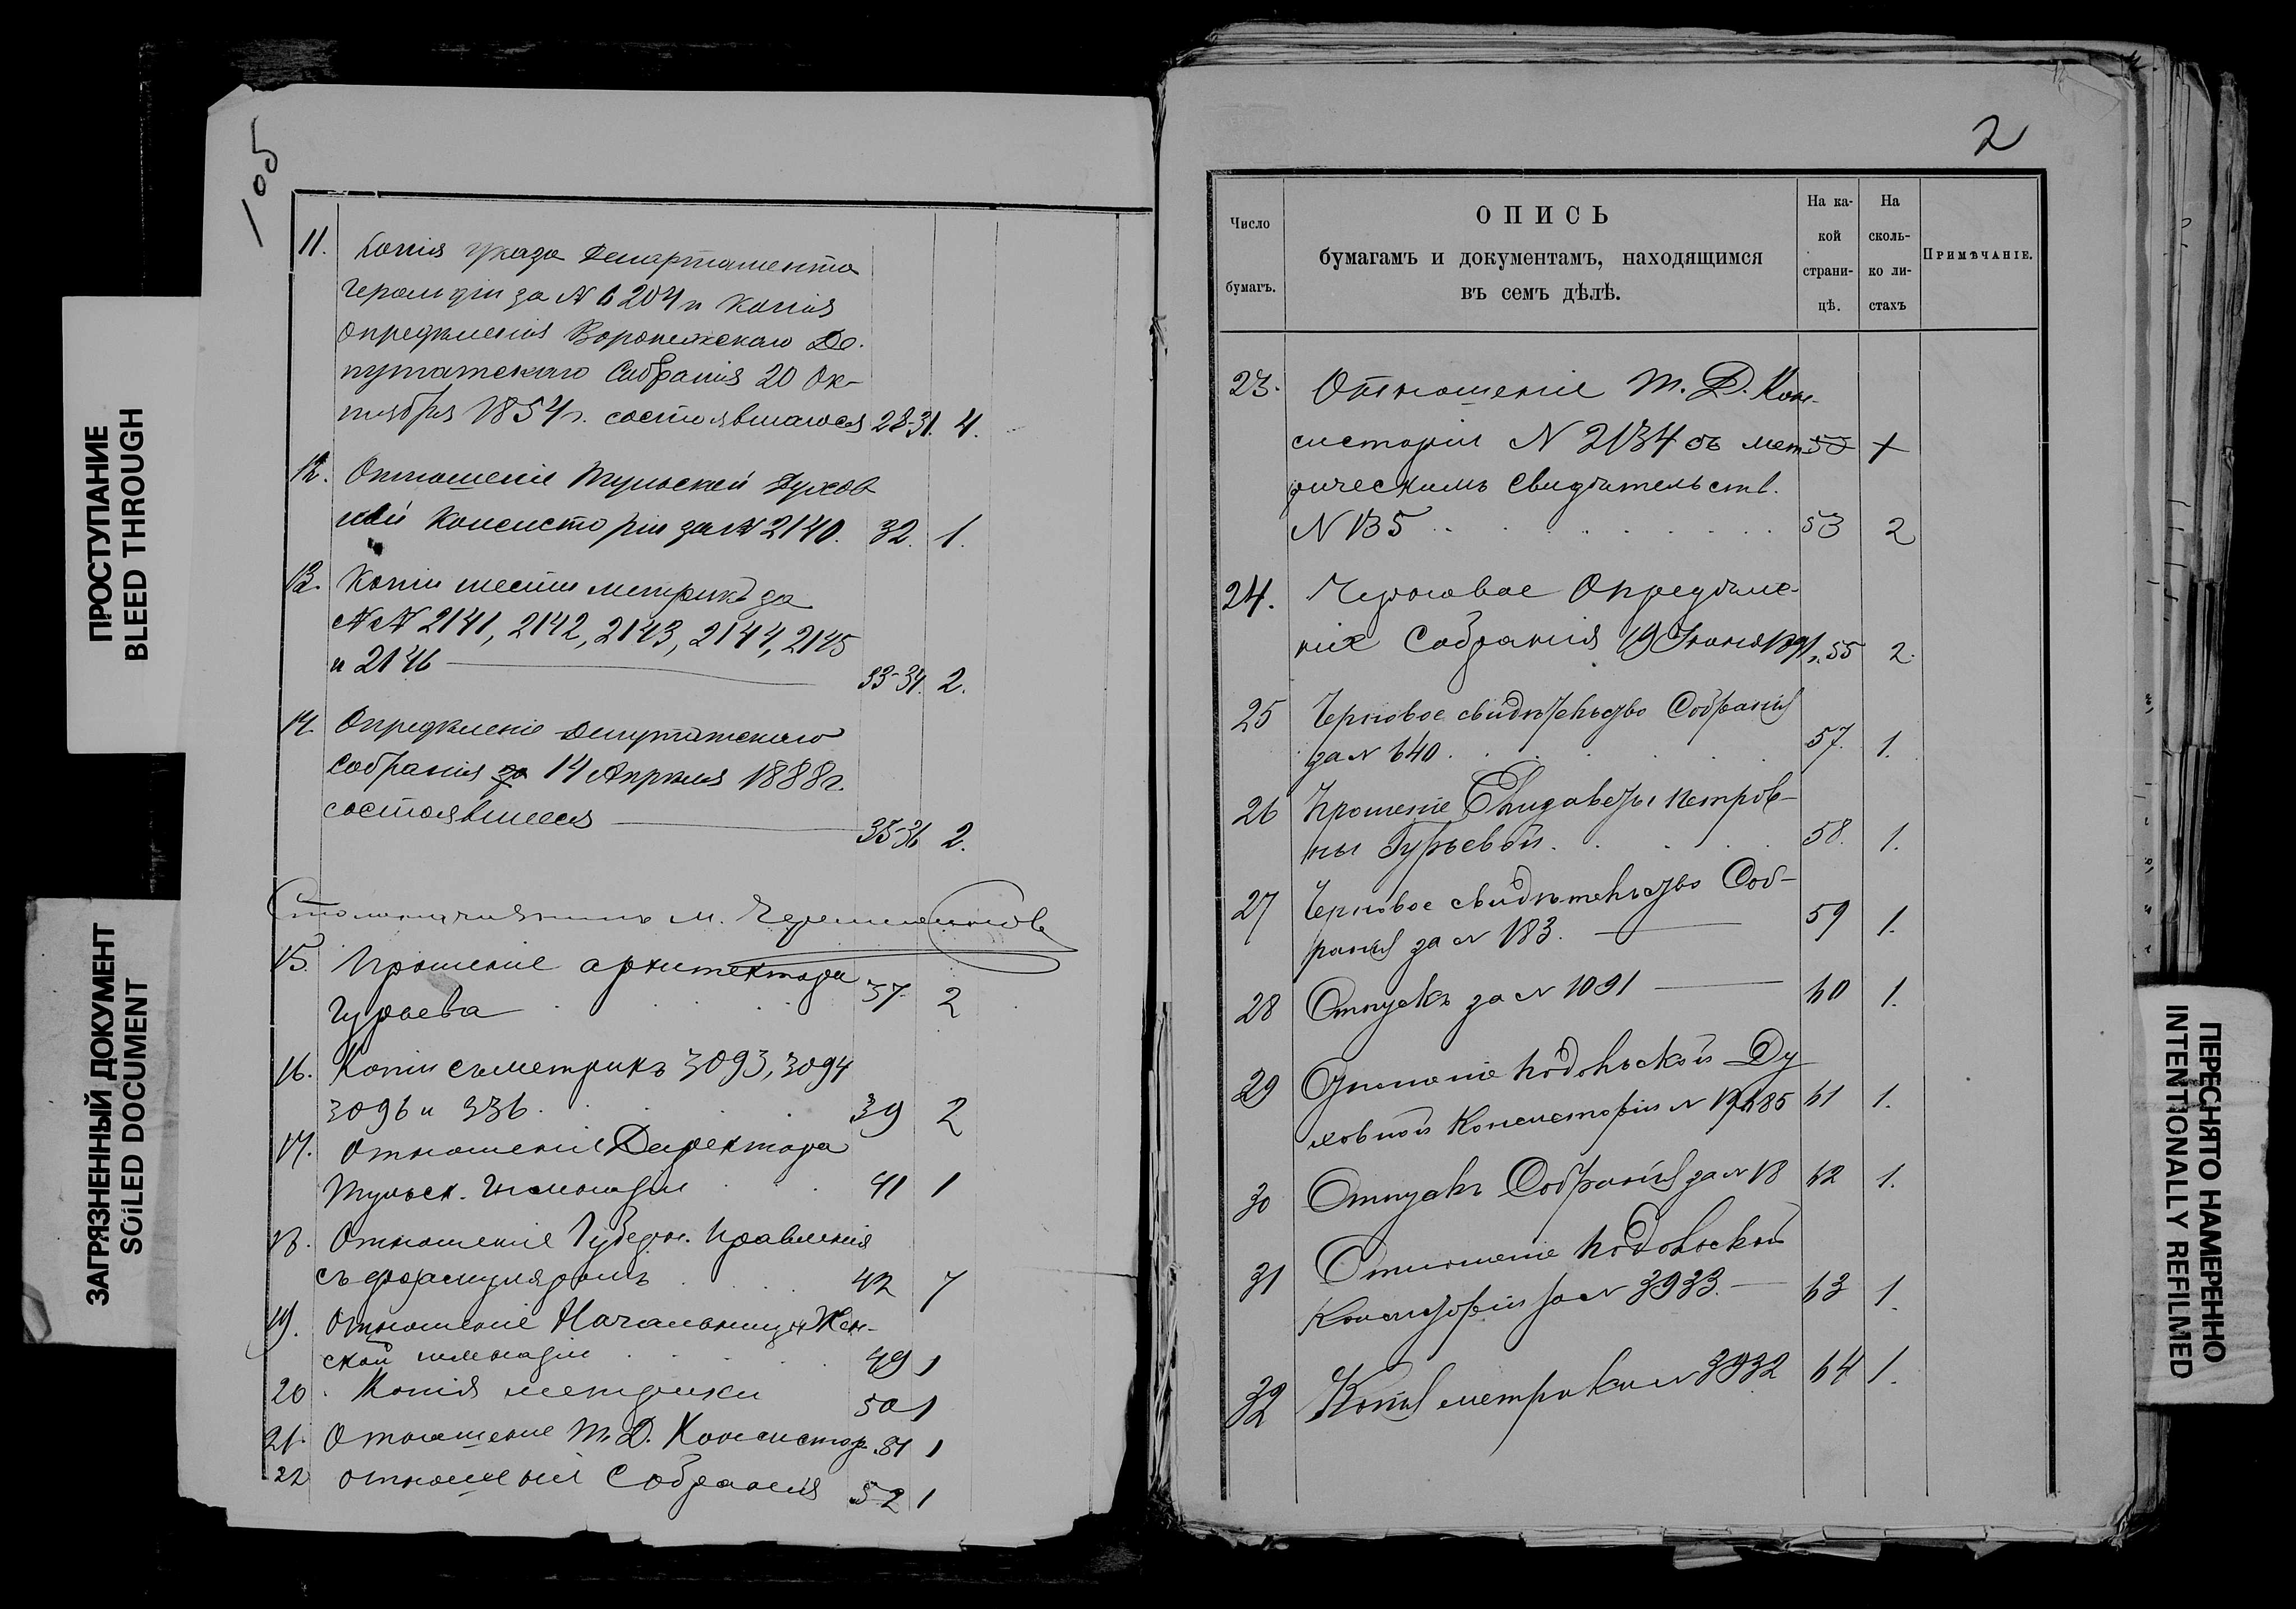 ПРОСТУПАНИЕ
BLEED THROUGH
ЗАГРЯЗНЕННЫЙ ДОКУМЕНТ
SOILED DOCUMENT
105
11. Копія указа Департамента
Герольдіи за N 6204 и копія
опредѣленія Воронежскаго Де-
путатскаго Собранія 20 Ок-
тября 1854 г. состоявшагося 28-31. 4.
12. Отношеніе Тульской Духов
ной Консисторіи за N 2140. 32. 1.
13. Копіи шести метрикъ за
NN 2141, 2142, 2143, 2144, 2145
и 2146 33-34. 2.
14. Опредѣленіе Депутатскаго
Собранія за 14 Апрѣля 1888 г.
состоявшееся 35-36 2.
Столоначальникъ М.
15. Прошеніе архитектора
Гурьева 37. 2
16. Копіи съ метрикъ 3093, 3094
3096 и 336. 39 2
17. Отношеніе Директора
Тульск. Гимназіи 41 1
18. Отношеніе Губерн. Правленія
съ формуляромъ 42 7
19. Отношеніе Начальницы Жен-
ской гимназіи 49 1
20. Копія метрики 50 1
21. Отношеніе Т. Д. Консистор. 51 1
22 отношеніе Собранія 52 1
2
Число бумагъ.
ОПИСЬ
бумагамъ и документамъ, находящимся
въ семъ дѣлѣ.
На ка-
кой
страни-
цѣ.
На
сколь-
ко ли-
стахъ
Примѣчаніе.
23. Отношеніе Т. Д. Кон-
систоріи N 2134 съ мет
рическимъ свидѣтельств.
N 135 53 2
24. Черновое Опредѣле-
ніе Собранія 19 Іюня 55 2.
25 Черновое свидѣтельство Собранія
за N 640. 57. 1.
26 Прошеніе Елизаветы Петров-
ны Гурьевой. 58. 1.
27 Черновое свидѣтельство Соб-
ранія за N 183. 59 1.
28 Отпускъ за N 1091 60 1.
29 Отношеніе Подольской Ду
ховной Консисторіи N 61 1.
30 Отпускъ Собранія за N 18 62 1.
31 Отношеніе Подольской
Консисторіи за N 3933. 63 1.
32 Копія метрики N 3932 64 1.
ПЕРЕСНЯТО НАМЕРЕННО
INTENTIONALLY REFILMED